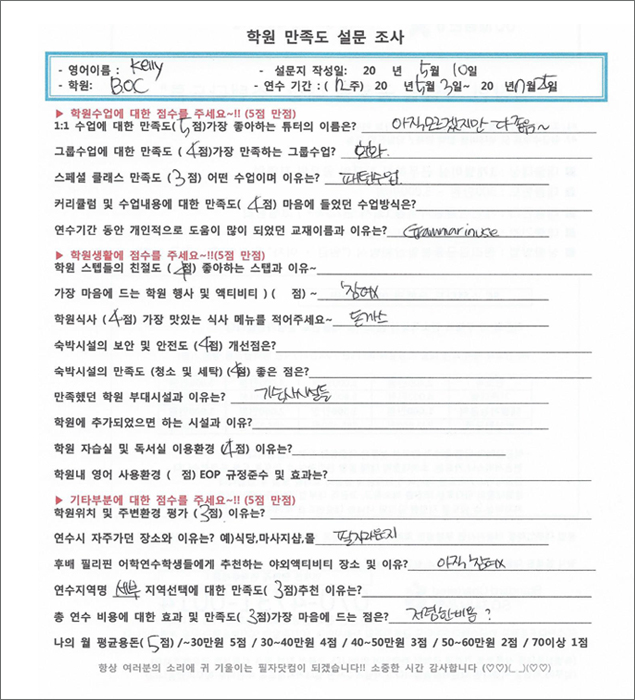 학원 만족도 설문 조사
- 영어이름 : Kelly - 설문지 작성일: 20 년 5월 10일
- 학원: BOC - 연수 기간 : ( 12주) 20 년 5월 3일~ 20 년 7월 25일
▶ 학원수업에 대한 점수를 주세요~!! (5점 만점)
1:1 수업에 대한 만족도( 5점)가장 좋아하는 튜터의 이름은? 아직모르겠지만 다좋음~
그룹수업에 대한 만족도 ( 4점)가장 만족하는 그룹수업?
스페셜 클래스 만족도 ( 3점) 어떤 수업이며 이유는? 패턴수업.
커리큘럼 및 수업내용에 대한 만족도( 4점) 마음에 들었던 수업방식은?
연수기간 동안 개인적으로 도움이 많이 되었던 교재이름과 이유는? Grammar in use
▶ 학원생활에 점수를 주세요~!!(5점 만점)
학원 스텝들의 친절도 ( 4점) 좋아하는 스탭과 이유~
가장 마음에 드는 학원 행사 및 액티비티 ) ( 점) ~ 참여X
학원식사 ( 4점) 가장 맛있는 식사 메뉴를 적어주세요~ 돈까스
숙박시설의 보안 및 안전도 ( 4점) 개선점은?
숙박시설의 만족도 (청소 및 세탁) ( 4점) 좋은 점은?
만족했던 학원 부대시설과 이유는? 기숙사시설들
학원에 추가되었으면 하는 시설과 이유?
학원 자습실 및 독서실 이용환경 ( 4점) 이유는?
학원내 영어 사용환경 ( 점) EOP 규정준수 및 효과는?
▶ 기타부분에 대한 점수를 주세요~!! (5점 만점)
학원위치 및 주변환경 평가 ( 3점) 이유는?
연수시 자주가던 장소와 이유는? 예)식당,마사지샵,몰
후배 필리핀 어학연수학생들에게 추천하는 야외액티비티 장소 및 이유? 아직 참여X
연수지역명 세부 지역선택에 대한 만족도( 3점)추천 이유는?
총 연수 비용에 대한 효과 및 만족도( 3점)가장 마음에 드는 점은? 저렴한비용?
나의 월 평균용돈( 5점) /~30만원 5점 / 30~40만원 4점 / 40~50만원 3점 / 50~60만원 2점 / 70이상 1점
항상 여러분의 소리에 귀 기울이는 필자닷컴이 되겠습니다!! 소중한 시간 감사합니다 (♡♡)(_ _)(♡♡)